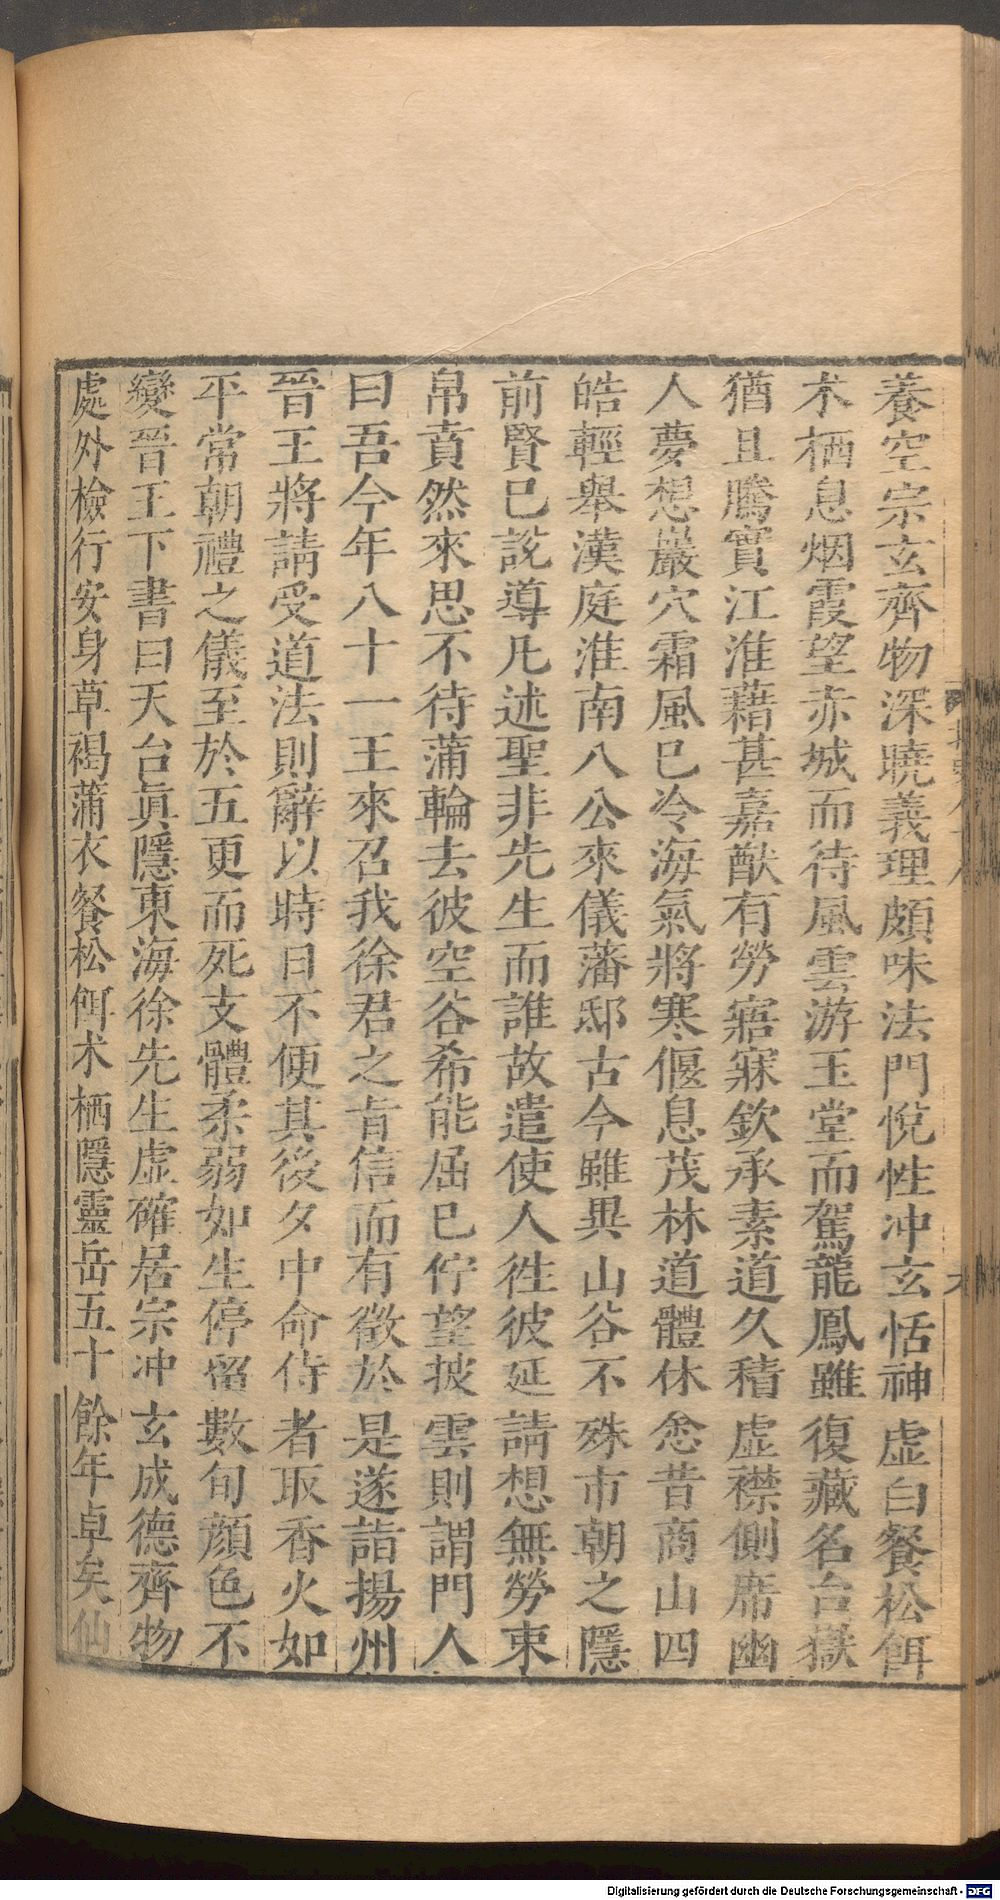 養空宗玄齊物深曉義理頗味法門悅性冲玄恬神虛白餐松餌
术栖息烟霞望赤城而待風雲游玉堂而駕龍鳳雖復藏名台嶽
猶且騰實江淮藉甚嘉猷有勞寤寐欽承素道久積虛襟側席幽
人夢想巖穴霜風已冷海氣將寒偃息茂林道體休悆昔商山四
皓輕舉漢庭淮南八公來儀藩邸古今雖異山谷不殊市朝之隱
前賢已說導凡述聖非先生而誰故遣使人徃彼延請想無勞束
帛賁然來思不待蒲輪去彼空谷希能屈已佇望披雲則謂門人
曰吾今年八十一王來召我徐君之旨信而有徵於是遂詣揚州
晉王將請受道法則辭以時日不便其後夕中命侍者取香火如
平常朝禮之儀至於五更而死支體柔弱如生停留數旬顏色不
變晉王下書曰天台眞隱東海徐先生虛確居宗冲玄成德齊物
處外檢行安身草褐蒲衣餐松餌术栖隱靈岳五十餘年卓矣仙
Digitalisierung gefördert durch die Deutsche Forschungsgemeinschaft - DFG